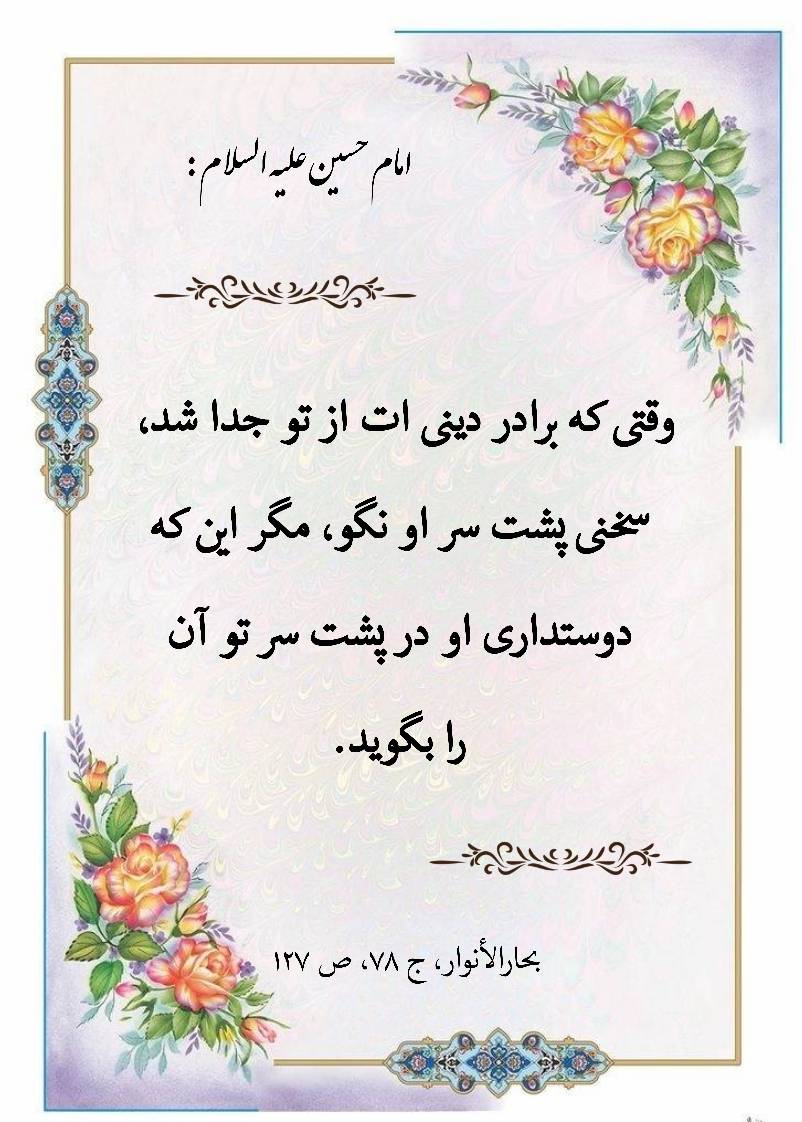 امام حسین علیه السلام :
وقتی که برادر دینی ات از تو جدا شد،
سخنی پشت سر او نگو، مگر این که
دوستداری او در پشت سر تو آن
را بگوید.
بحارالأنوار، ج ۷۸، ص ۱۲۷